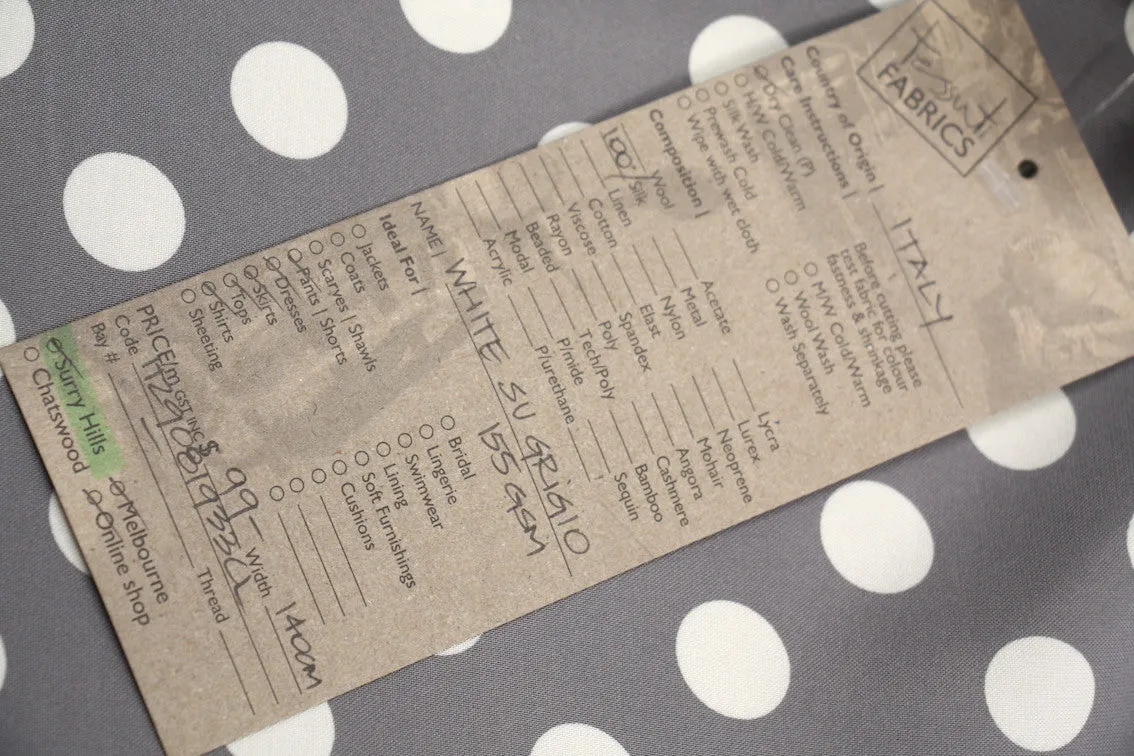 Tessuti
FABRICS
Country of Origin | ITALY
Care Instructions |
Dry Clean (P)
H/W Cold/Warm
Silk Wash
Prewash Cold
Wipe with wet cloth
Before cutting please
test fabric for colour
fastness & shrinkage
M/W Cold/Warm
Wool Wash
Wash Separately
Composition |
Wool
100% Silk
Linen
Cotton
Viscose
Rayon
Beaded
Modal
Acrylic
Acetate
Metal
Nylon
Elast
Spandex
Poly
Tech/Poly
P/mide
P/urethane
Lycra
Lurex
Neoprene
Mohair
Angora
Cashmere
Bamboo
Sequin
NAME | WHITE SU GRIGIO
155 GSM
Ideal For |
Jackets
Coats
Scarves | Shawls
Pants | Shorts
Dresses
Skirts
Tops
Shirts
Sheeting
Bridal
Lingerie
Swimwear
Lining
Soft Furnishings
Cushions
PRICE/m GST INC $ 99- Width 140cm
Code
Bay # Thread
Surry Hills
Chatswood
Melbourne
Online shop